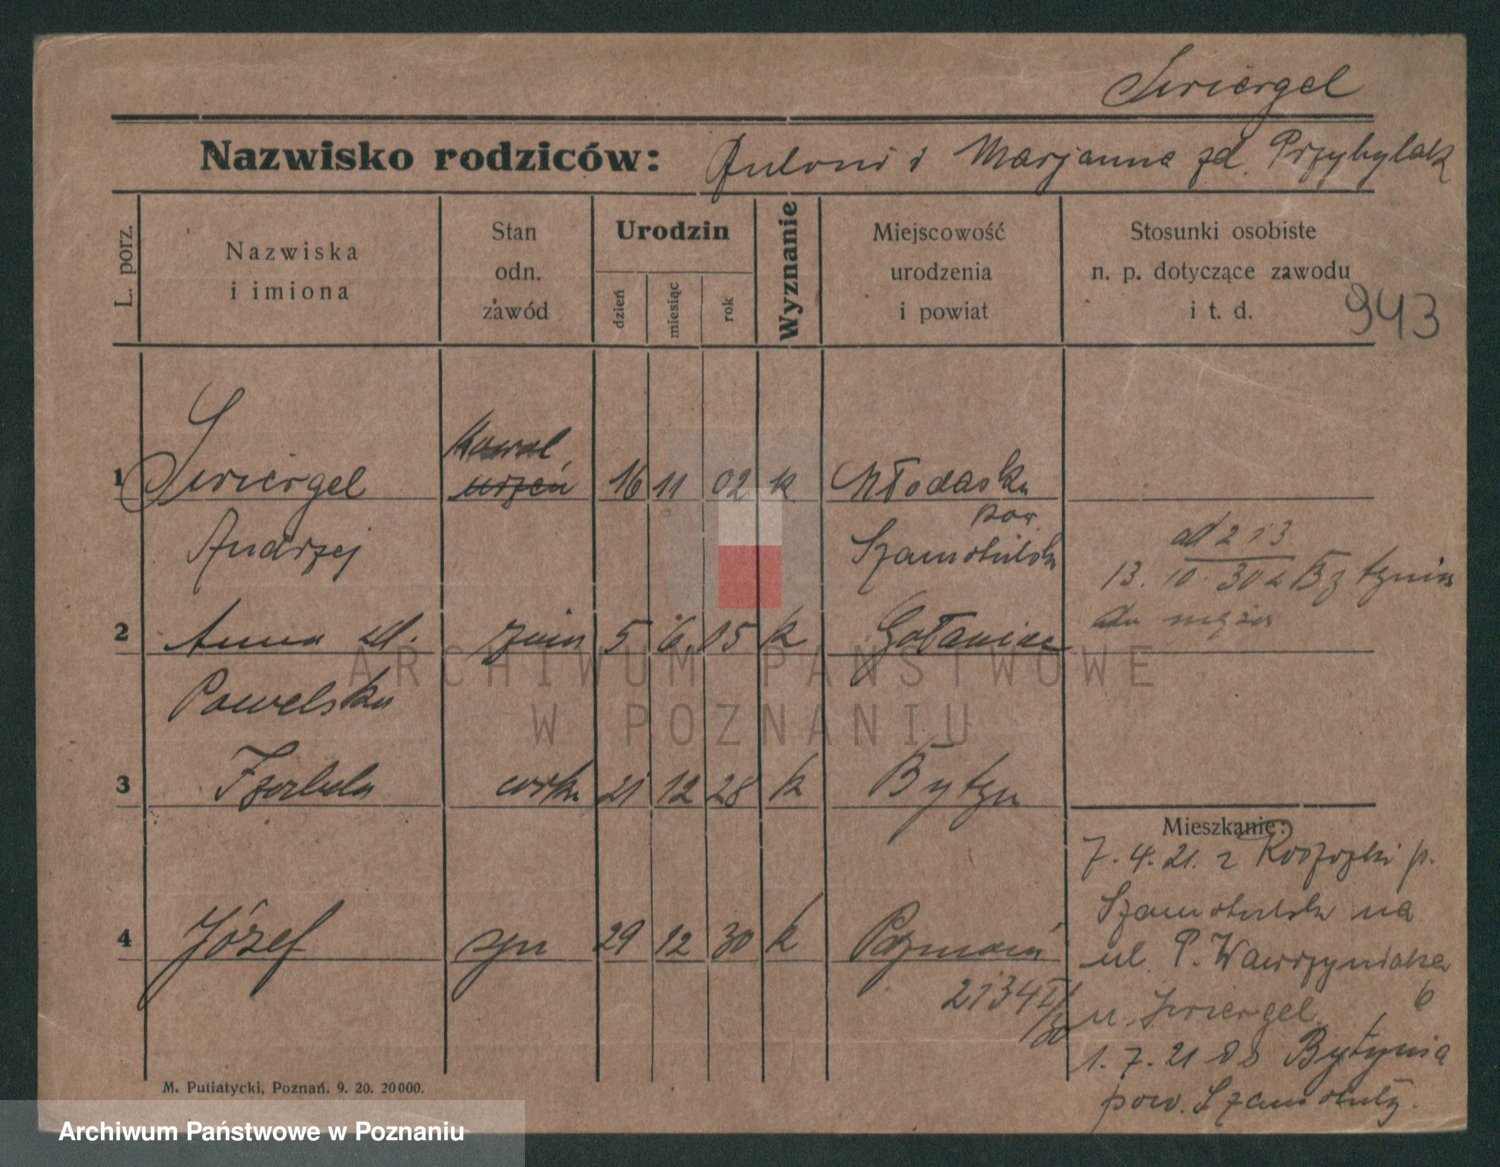 Swiergel
Nazwisko rodziców: Antoni i Marjanna zd. Przybylak
L. porz.
Nazwiska
i imiona
Stan
odn.
zawód
Urodzin
dzień
miesiąc
rok
Wyznanie
Miejscowość
urodzenia
i powiat
Stosunki osobiste
n. p. dotyczące zawodu
i t. d.
943
1 Swiergel
Kawal.
uczeń
16 11 02 k
Młodasko
pow.
Andrzej
Szamotulski
ad 2 i 3
13. 10. 30 z Bytynia
do męża
2 Anna zd. żona 5 6. 05 k Gołaniec
Pawelska
3 Izabela córka 21 12 28 k Bytyń
4 Józef syn 29 12 30 k Poznań
Mieszkanie:
7. 4. 21. z p.
Szamotulski na
ul. P. Wawrzyniaka
6
u. Swiergel
1. 7. 21 do Bytynia
pow. Szamotuły.
M. Putiatycki, Poznań. 9. 20. 20000.
ARCHIWUM PAŃSTWOWE
W POZNANIU
Archiwum Państwowe w Poznaniu